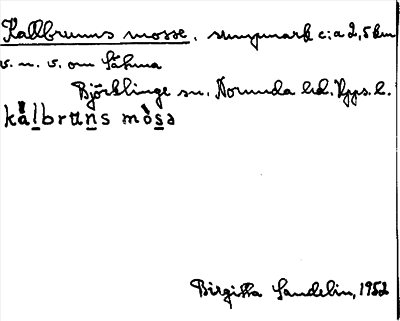 Kallbruns mosse, sumpmark c:a 2,5 km
v. n. v. om Såhma
Björklinge sn. Norunda hd. Upps. l.
kal̠bruṉs mòs̠a
Birgitta Sandelin, 1952